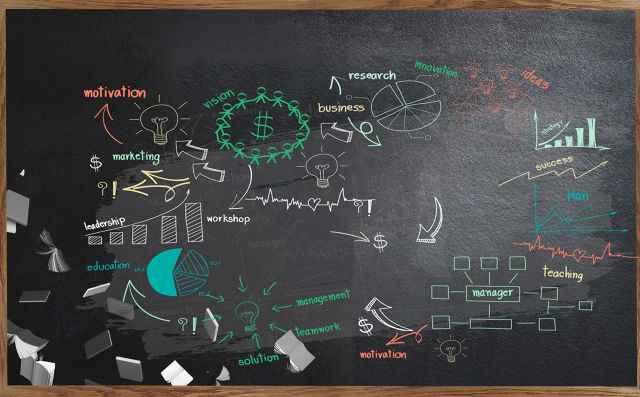 motivation
vision
$
research
innovation
ideas
business
strategy
marketing
$
?!
success
leadership
workshop
?!
plan
$
education
teaching
manager
management
teamwork
?!
$
solution
motivation